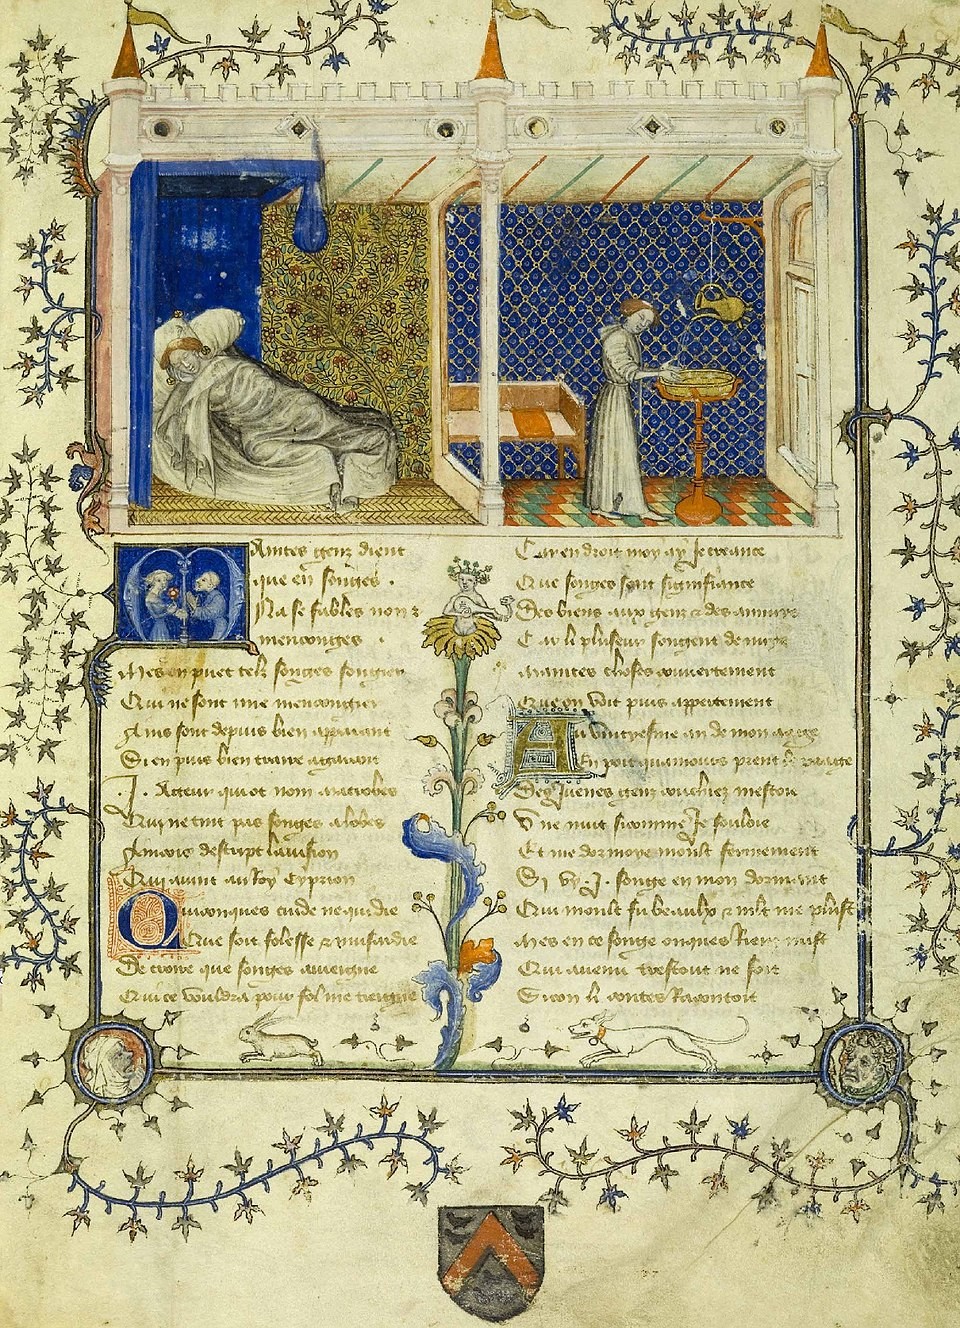 Maintes genz dient
que en songes
Na se fables non z
menconges
Mes on puet telz songes songier
Qui ne sont mie mencongier
Ains sont depuis bien apparant
Si en puis bien traire a garant
.J. Acteur qui ot nom macrobes
Qui ne tint pas songes a lobes
Ancois descript la vision
Qui avint au Roy Cyprion
Quiconques cuide ne qui die
Que soit folesse z musardie
De croire que songes aviengne
Qui ce vouldra pour fol me tiengne
Car en droit moy ay je creance
Que songes sont signifiance
Des biens aux genz z des annuiz
Car li pluseur songent de nuiz
Maintes choses couvertement
Que on voit puis appertement
Au vintyesme an de mon aage
En point quamours prent le paage
Des juenes genz couchiez mestoie
Une nuit si comme je souloie
Et me dormoye moult forment
Si vy .J. songe en mon dormant
Qui moult fu beaulx z mlt me plust
Mes en ce songe onques riens nust
Qui avenu trestout ne soit
Si con li contes racontoit